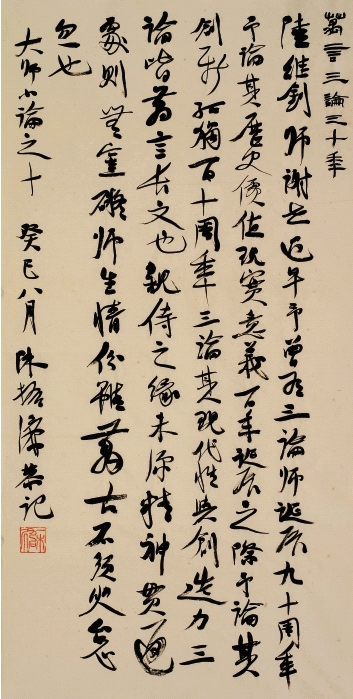 萬言三論三十年
陸維釗師謝世近年予曾有三論師誕辰九十周年
予論其歷史價值現實意義百年誕辰之際予論其
創新百十周年三論其現代性與創造力三
論皆萬言長文也親侍之緣未深精神貫通
處則無窒礙師生情份雖萬古不須臾忘
忽也
大師小論之十 癸巳八月 陳振濂恭記